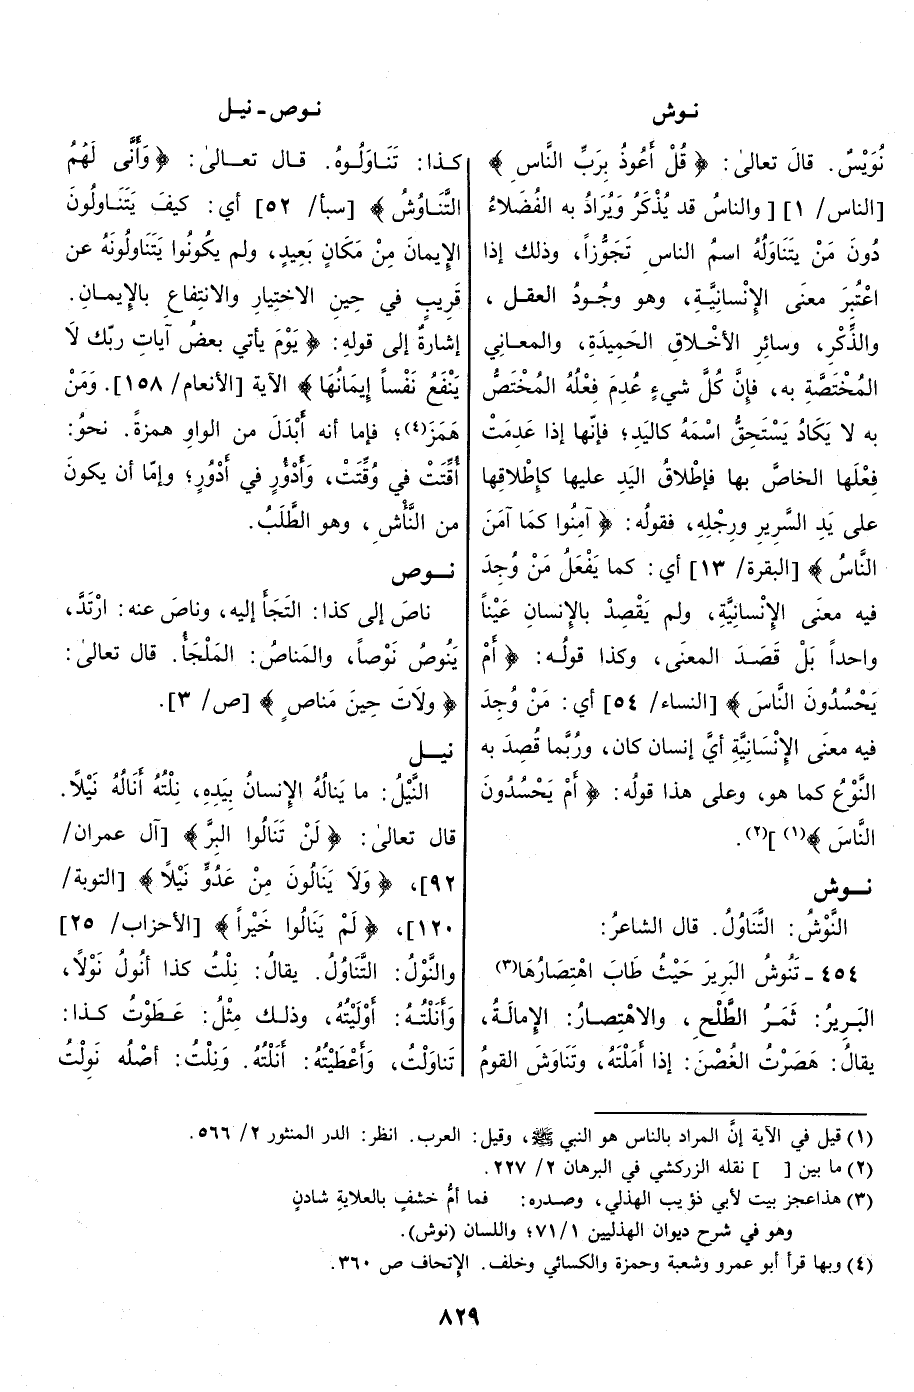 نـوش
نُوَيْسٌ. قالَ تعالىٰ: ﴿ قُلْ أَعُوذُ بِرَبِّ النَّاسِ ﴾
[الناس/ ١] [ والناسُ قد يُذْكَرُ وَيُرَادُ به الفُضَلاءُ
دُونَ مَنْ يتَناوَلُهُ اسمُ الناسِ تَجَوُّزاً، وذلك إذا
اعْتُبِرَ معنَى الإِنْسانِيَّـةِ، وهو وجُـودُ العقـلِ،
والذِّكْرِ، وسائِرِ الأخْـلاقِ الحَميدَةِ، والمعـانِي
المُخْتَصَّةِ به، فإنَّ كُلَّ شيءٍ عُدِمَ فِعْلُهُ المُخْتَصُّ
به لا يَكَادُ يَسْتَحِقُّ اسْمَهُ كاليَدِ؛ فإنّها إذا عَدِمَتْ
فِعْلَها الخاصَّ بها فإطْلاقُ اليَدِ عليها كإطْلاقِها
على يَدِ السَّرِيرِ ورِجْلِهِ، فقولُه: ﴿ آمِنُوا كمَا آمَنَ
النَّاسُ ﴾ [البقرة/ ١٣] أي: كما يَفْعَلُ مَنْ وُجِدَ
فيه معنَى الإِنْسانِيَّةِ، ولم يَقْصِدْ بالإنسانِ عَيْناً
واحداً بَلْ قَصَـدَ المعنَى، وكذا قولُـه: ﴿ أَمْ
يَحْسُدُونَ النَّاسَ ﴾ [النساء/ ٥٤] أي: مَنْ وُجِدَ
فيه معنَى الإِنْسَانِيَّةِ أيَّ إنسان كان، ورُبَّما قُصِدَ به
النَّوْعُ كما هو، وعلى هذا قولُه: ﴿ أَمْ يَحْسُدُونَ
النَّاسَ ﴾(١) ](٢).
نـوش
النَّوْشُ: التَّناوُلُ. قال الشاعرُ:
٤٥٤ ـ تَنُوشُ البَرِيرَ حَيْثُ طَابَ اهْتِصَارُهَا(٣)
البَرِيرُ: ثَمَرُ الطَّلْحِ، والاهْتِصـارُ: الإِمالَـةُ،
يقالُ: هَصَرْتُ الغُصْنَ: إذا أَمَلْتَهُ، وتَنَاوَشَ القومُ
نـوص - نيـل
كـذا: تَنَـاوَلُـوهُ. قـال تعـالىٰ: ﴿ وَأَنَّى لَهُمُ
التَّنَـاوُشُ ﴾ [سبأ/ ٥٢] أي: كيفَ يَتَنَـاولُونَ
الإِيمانَ مِنْ مَكَانٍ بَعِيدٍ، ولم يكُونُوا يَتَنَاولُونَهُ عن
قَرِيبٍ في حِينِ الاختِيارِ والانتِفاعِ بالإِيمـانِ.
إشارةً إلى قولِهِ: ﴿ يَوْمَ يأتي بعضُ آياتِ ربّك لاَ
يَنْفَعُ نَفْساً إيمَانُهَا ﴾ الآية [الأنعام/ ١٥٨]. وَمَنْ
هَمَزَ(٤)؛ فإما أنه أَبْدَلَ من الواوِ همزةً. نحوُ:
أُقِّتَتْ في وُقِّتَتْ، وَأَدْؤُرٍ في أَدْوُرٍ؛ وإمّا أن يكونَ
من النَّأْشِ، وهو الطَّلَبُ.
نـوص
ناصَ إلى كذا: التَجَأَ إليه، وناصَ عنه: ارْتَدَّ،
يَنُوصُ نَوْصاً، والمَناصُ: المَلْجَأُ. قال تعالىٰ:
﴿ ولاَتَ حِينَ مَناصٍ ﴾ [ص/ ٣].
نيـل
النَّيْلُ: ما يَنالُهُ الإِنسانُ بِيَدِهِ، نِلْتُهُ أَنَالُهُ نَيْلاً.
قال تعالىٰ: ﴿ لَنْ تَنَالُوا البِرَّ ﴾ [آل عمران/
٩٢]، ﴿ وَلاَ يَنَالُونَ مِنْ عَدُوٍّ نَيْلاً ﴾ [التوبة/
١٢٠]، ﴿ لَمْ يَنَالُوا خَيْراً ﴾ [الأحزاب/ ٢٥]
والنَّوْلُ: التَّناوُلُ. يقالُ: نِلْتُ كذا أَنُولُ نَوْلاً،
وَأَنَلْتُـهُ: أَوْلَيْتُهُ، وذلـك مِثْلُ: عَـطَوْتُ كـذا:
تَناوَلْتُ، وَأَعْطَيْتُهُ: أَنَلْتُهُ. وَنِلْتُ: أصْلُه نَوِلْتُ
(١) قيل في الآية إنَّ المراد بالناس هو النبي ﷺ، وقيل: العرب. انظر: الدر المنثور ٢/ ٥٦٦.
(٢) ما بين [ ] نقله الزركشي في البرهان ٢/ ٢٢٧.
(٣) هذا عجز بيت لأبي ذؤيب الهذلي، وصدره: فما أمُّ خشفٍ بالعلايةِ شادنٍ
وهو في شرح ديوان الهذليين ٧١/١؛ واللسان (نوش).
(٤) وبها قرأ أبو عمرو وشعبة وحمزة والكسائي وخلف. الإتحاف ص ٣٦٠.
٨٢٩